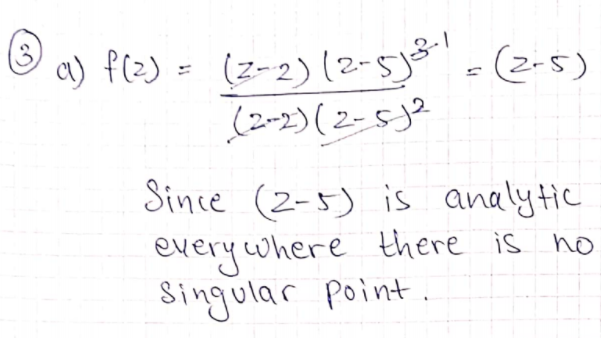 ③ a) f(z) = (z-2)(z-5)³⁻¹ = (z-5)
(z-2)(z-5)²
Since (z-5) is analytic
everywhere there is no
singular point.